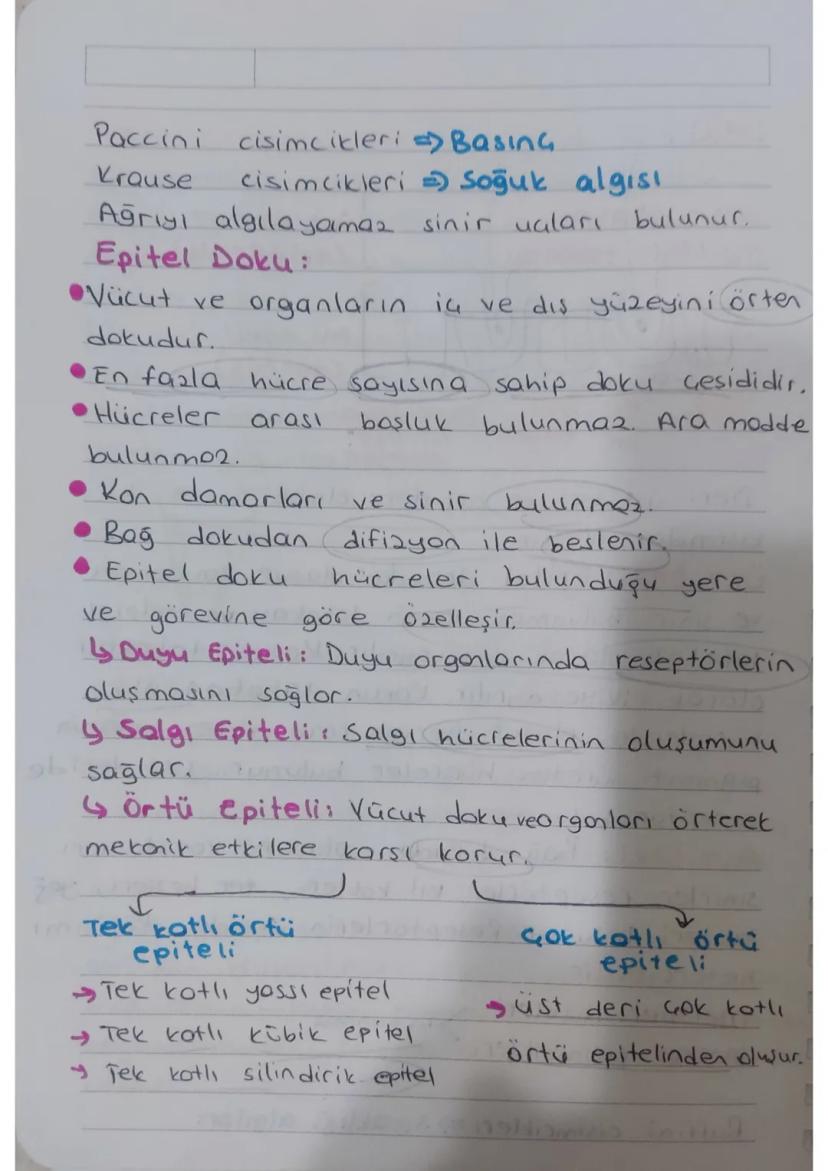 Paccini cisimcikleri ⇒ Basınç
Krause cisimcikleri ⇒ Soğuk algısı
Ağrıyı algılayamaz sinir uçları bulunur.
Epitel Doku:
• Vücut ve organların iç ve dış yüzeyini örten
dokudur.
• En fazla hücre sayısına sahip doku çeşididir.
• Hücreler arası boşluk bulunmaz. Ara madde
bulunmaz.
• Kan damarları ve sinir bulunmaz.
• Bağ dokudan difizyon ile beslenir.
• Epitel doku hücreleri bulunduğu yere
ve görevine göre özelleşir.
↳ Duyu Epiteli: Duyu organlarında reseptörlerin
oluşmasını sağlar.
↳ Salgı Epiteli: Salgı hücrelerinin oluşumunu
sağlar.
↳ Örtü epiteli: Vücut doku ve organları örterek
mekanik etkilere karşı korur.
Tek katlı örtü
epiteli
→ Tek katlı yassı epitel
→ Tek katlı kübik epitel
→ Tek katlı silindirik epitel
Çok katlı örtü
epiteli
→ Üst deri çok katlı
örtü epitelinden oluşur.